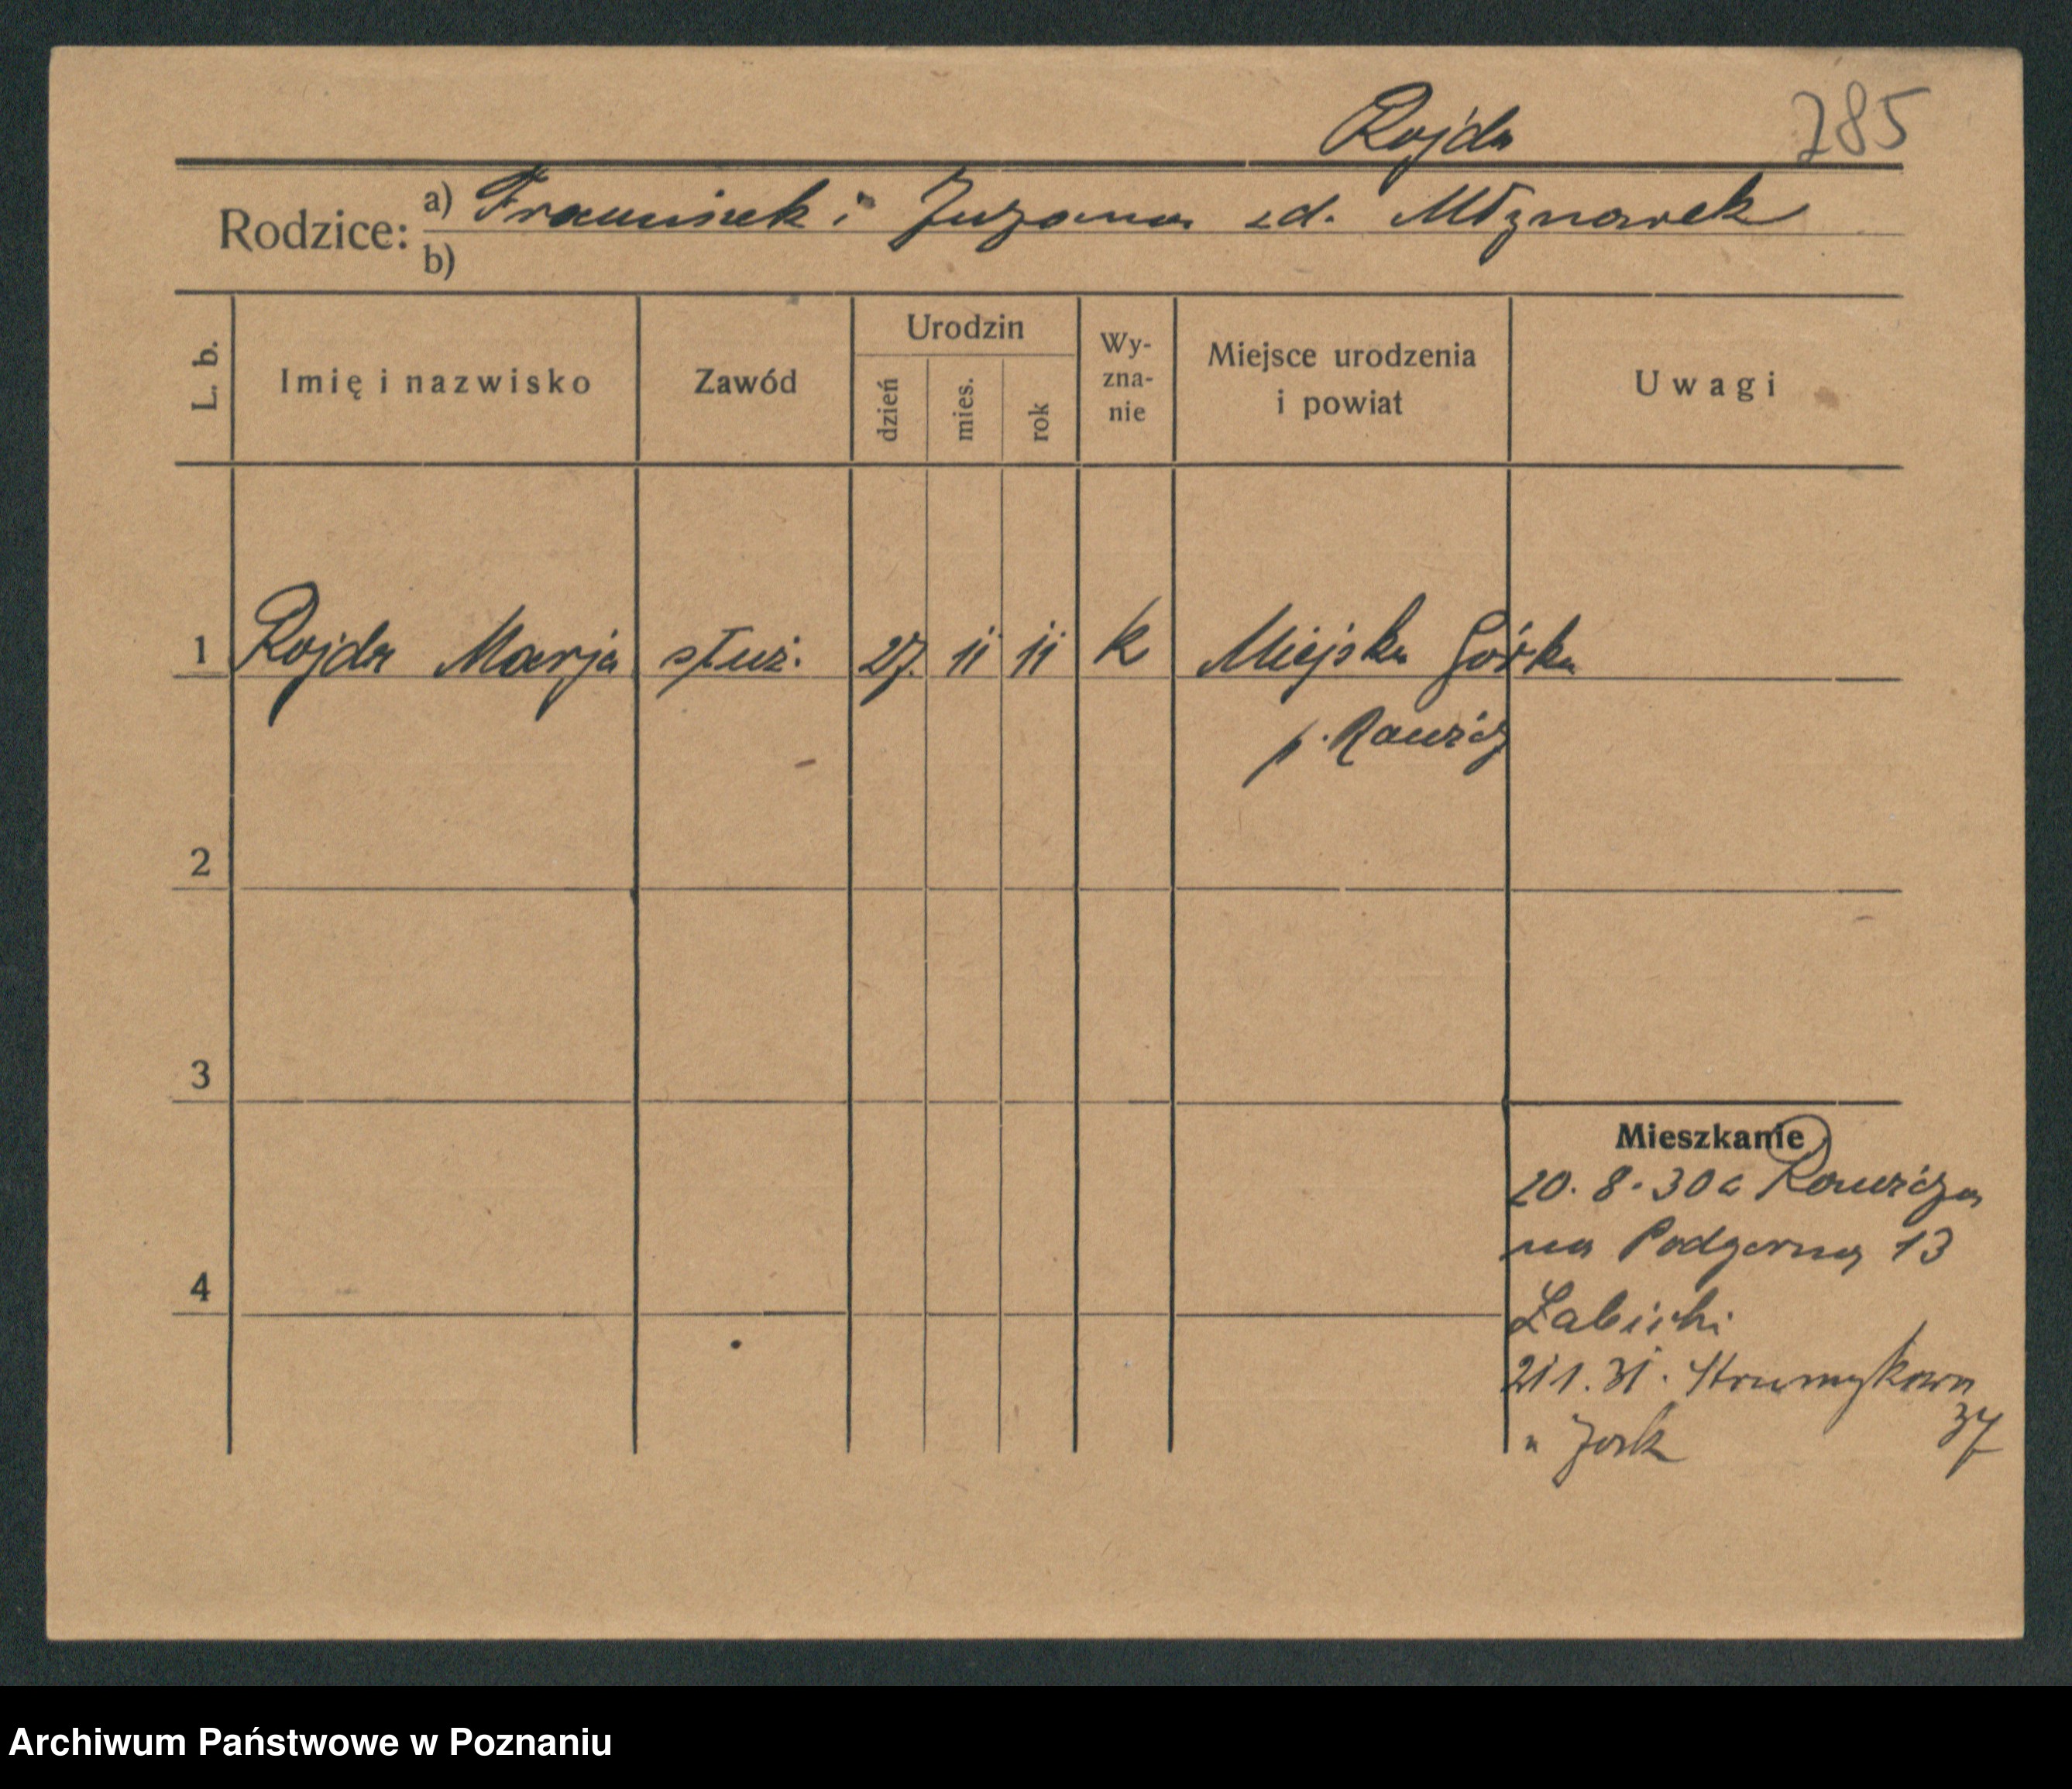 Rojda 285
Rodzice: a) Franciszek i Zuzanna zd. Młynarek
b)
L. b. Imię i nazwisko Zawód Urodzin dzień mies. rok Wy-zna-nie Miejsce urodzenia i powiat Uwagi
1 Rojda Marja służ. 27. 11 11 k Miejska Górka
p. Rawicz
2
3
Mieszkanie
20. 8. 30 Rawicza
na Podgorna 13
4
Żabicki
1. 31. Strumykowa
37
u Jork
Archiwum Państwowe w Poznaniu